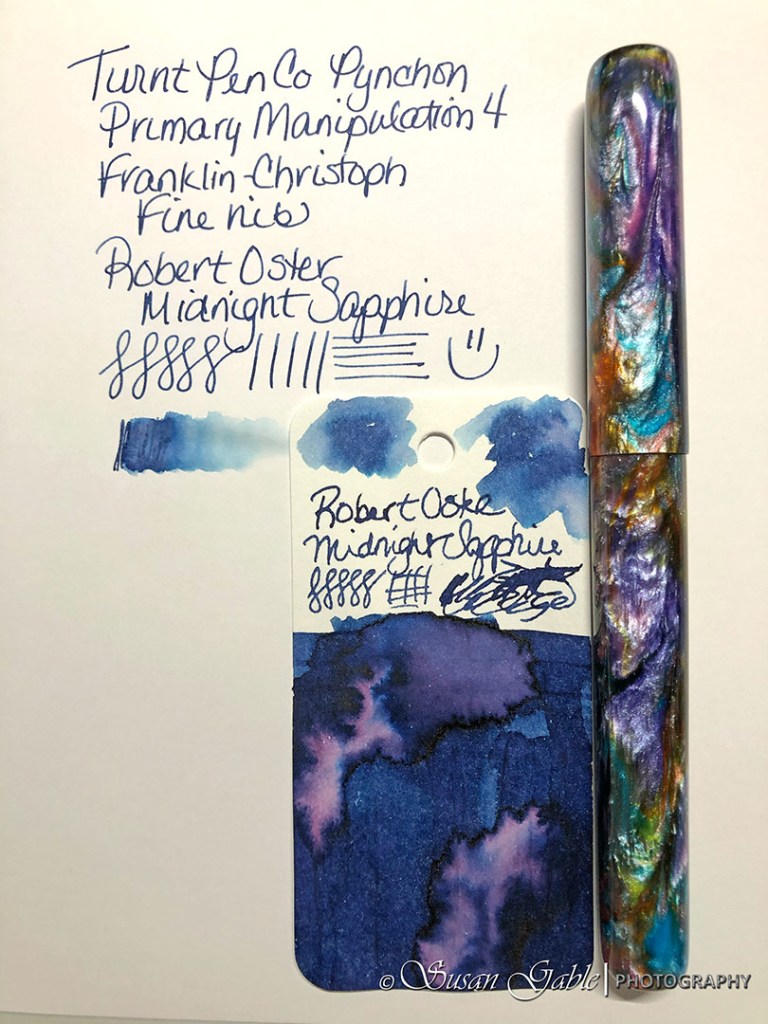 Turnt Pen Co Pynchon
Primary Manipulation 4
Franklin-Christoph
Fine nib
Robert Oster
Midnight Sapphire
Robert Oste
Midnight Sapphire
© Susan Gable | PHOTOGRAPHY